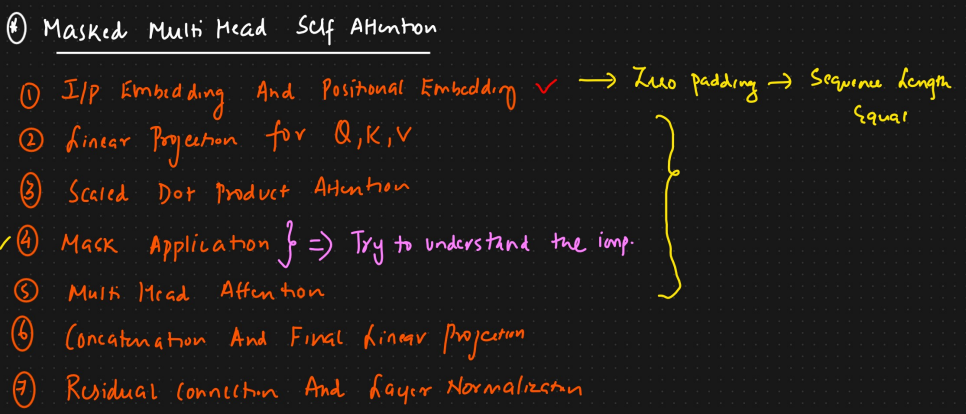 * Masked Multi Head Self Attention
① I/P Embedding And Positional Embedding ✓ → Zero padding → Sequence Length
Equal
② Linear Projection for Q, K, V
③ Scaled Dot Product Attention
✓ ④ Mask Application } => Try to understand the imp.
⑤ Multi Head Attention
⑥ Concatenation And Final Linear Projection
⑦ Residual Connection And Layer Normalization